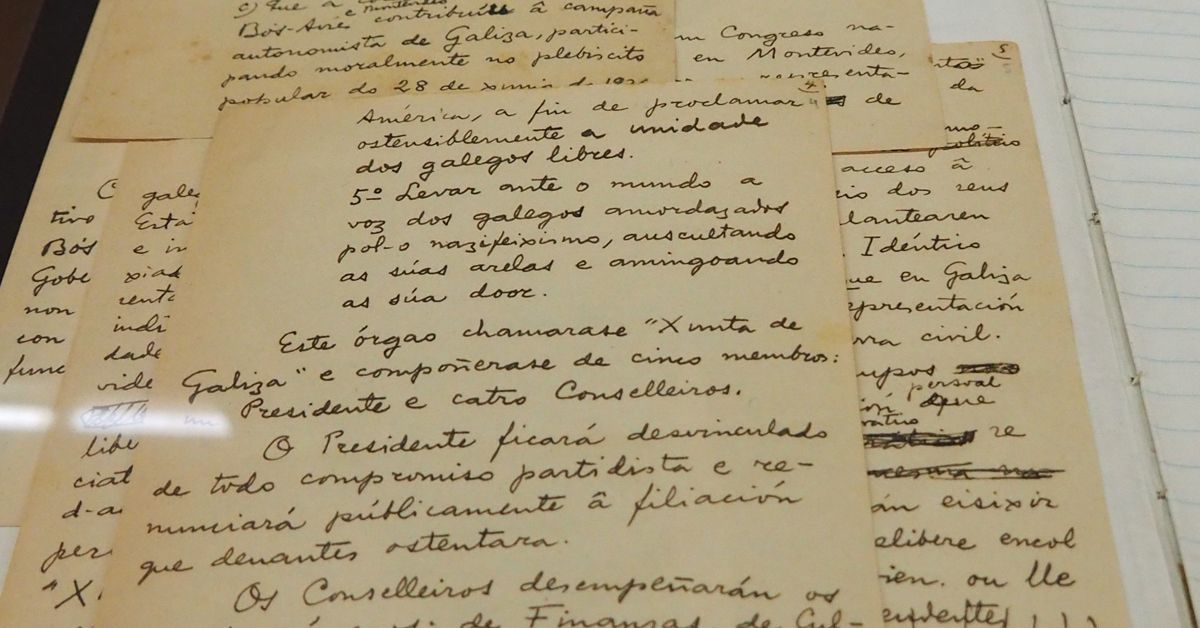 c) Que a
Bós-Aires contribuíu â campaña
autonomista de Galiza, partici-
pando moralmente no plebiscito
popular do 28 de xunio de
Congreso na-
en Montevideo,
representa-
da
4
América, a fin de proclamar de
ostensiblemente a unidade
dos galegos libres.
5º Levar ante o mundo a
voz dos galegos amordazados
pol-o nazifeixismo, auscultando
as súas arelas e amingoando
as súa door.
Este órgao chamarase "Xunta de
Galiza" e compoñerase de cinco membros:
un Presidente e catro Conselleiros.
O Presidente ficará desvinculado
de todo compromiso partidista e re-
nunciará públicamente â filiación
que denantes ostentara.
Os Conselleiros desempeñarán os
de Finanzas, de Cul-
5
acceso â
rio dos seus
lantearen
Idéntico
que en Galiza
epresentación
rra civil.
upos
persoal
re
án eisixir
elibere encol
ien. ou lle
galeg
Está
e in
xias
renta
indi
dade
vide
libe
ciat
d-a
per
"X
tivo
Bós
Gobe
non
con
func